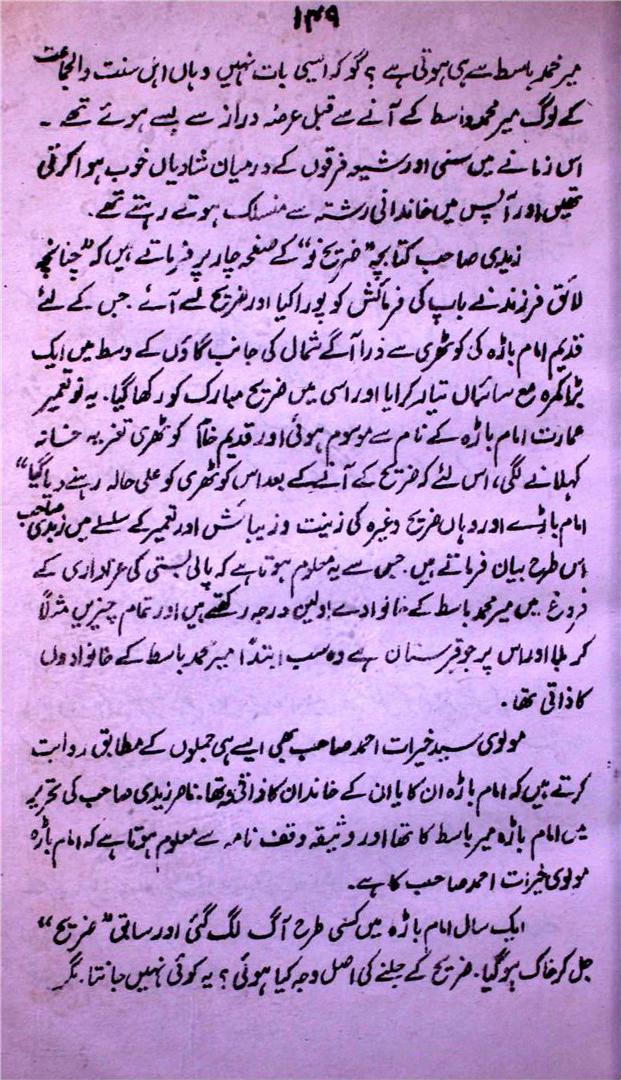 ۱۴۹
میر محمد باسط سے ہی ہوتی ہے؟ گو کہ ایسی بات نہیں وہاں اہل سنت والجماعت
کے لوگ میر محمد واسط کے آنے سے قبل عرصہ دراز سے بسے ہوئے تھے ۔
اس زمانے میں سنی اور شیعہ فرقوں کے درمیان شادیاں خوب ہوا کرتی
تھیں اور آپس میں خاندانی رشتہ سے منسلک ہوتے رہتے تھے۔
زیدی صاحب کتابچہ "ضریح نو" کے صفحہ چار پر فرماتے ہیں کہ "چنانچہ
لائق فرزند نے باپ کی فرمائش کو پورا کیا اور ضریح لے آئے۔ جس کے لئے
قدیم امام باڑہ کی کوٹھری سے ذرا آگے شمال کی جانب گاؤں کے وسط میں ایک
بڑا کمرہ مع سائباں تیار کرایا اور اسی میں ضریح مبارک کو رکھا گیا۔ یہ نو تعمیر
عمارت امام باڑہ کے نام سے موسوم ہوئی اور قدیم خام کوٹھری تعزیہ خانہ
کہلانے لگی، اس لئے کہ ضریح کے آنے کے بعد اس کوٹھری کو علی حالہ رہنے دیا گیا"
امام باڑے اور وہاں ضریح وغیرہ کی زینت و زیبائش اور تعمیر کے سلسلے میں زیدی صاحب
اس طرح بیان فرماتے ہیں۔ جس سے یہ معلوم ہوتا ہے کہ پالی بستی کی عزاداری کے
فروغ میں میر محمد باسط کے خانوادے اولین درجہ رکھتے ہیں اور تمام چیزیں مثلاً
کربلا اور اس پر جو قبرستان ہے وہ سب ابتداً میر محمد باسط کے خانوادوں
کا ذاتی تھا۔
مولوی سید خیرات احمد صاحب بھی ایسے ہی جملوں کے مطابق روایت
کرتے ہیں کہ امام باڑہ ان کا یا ان کے خاندان کا ذاتی تھا۔ ناصر زیدی صاحب کی تحریر
میں امام باڑہ میر باسط کا تھا اور وثیقہ وقف نامہ سے معلوم ہوتا ہے کہ امام باڑہ
مولوی خیرات احمد صاحب کا ہے۔
ایک سال امام باڑہ میں کسی طرح آگ لگ گئی اور ساتی "ضریح"
جل کر خاک ہو گیا۔ ضریح کے جلنے کی اصل وجہ کیا ہوئی؟ یہ کوئی نہیں جانتا۔ مگر